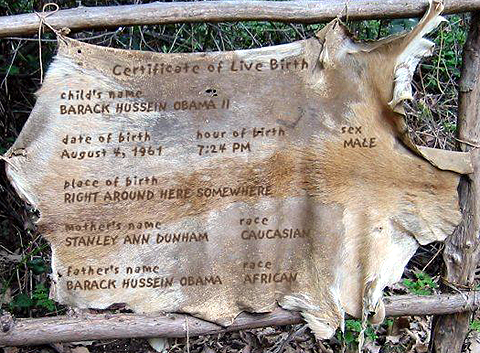 Certificate of Live Birth
child's name
BARACK HUSSEIN OBAMA II
date of birth hour of birth sex
August 4, 1961 7:24 PM MALE
place of birth
RIGHT AROUND HERE SOMEWHERE
mother's name race
STANLEY ANN DUNHAM CAUCASIAN
father's name race
BARACK HUSSEIN OBAMA AFRICAN